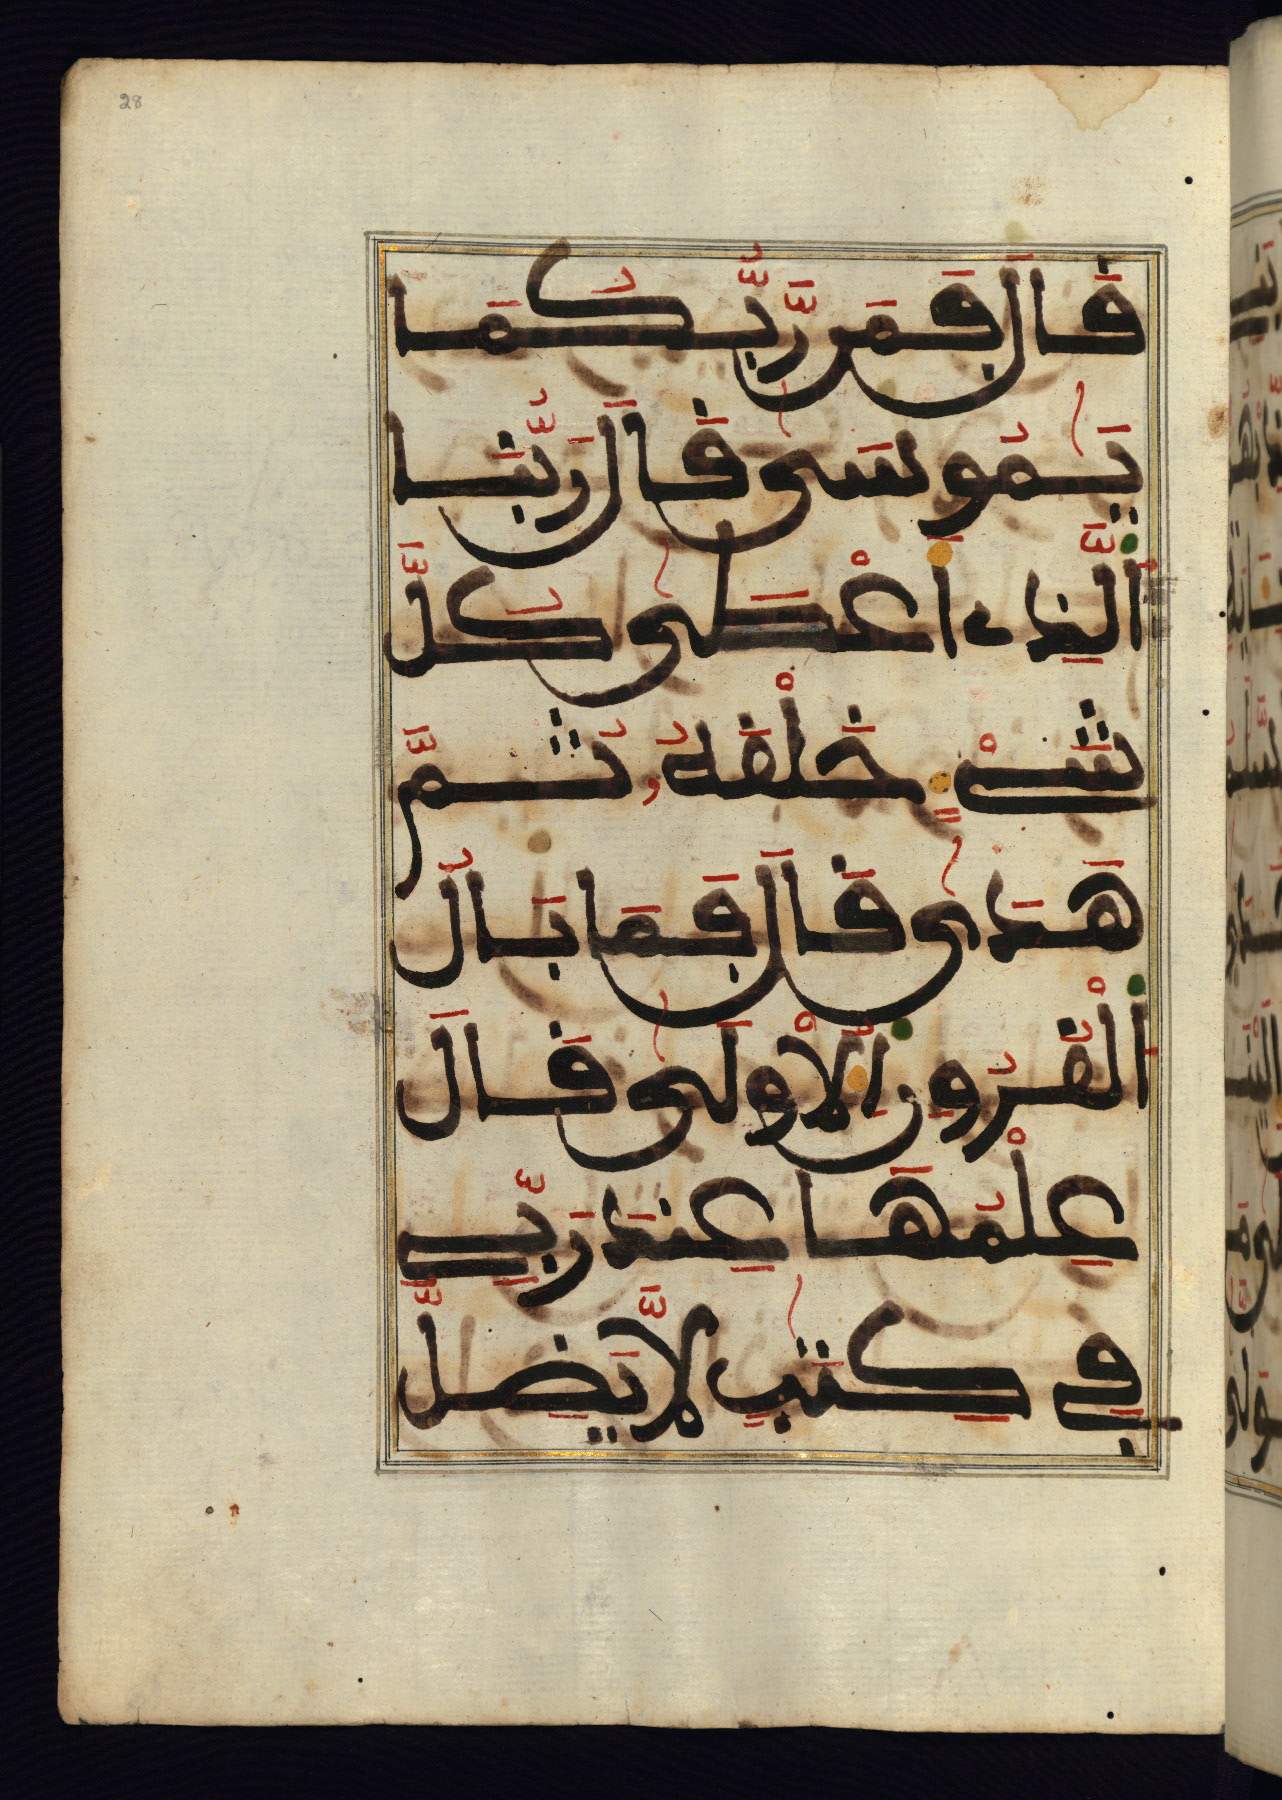 28
قَالَ فَمَن رَّبُّكُمَا
يَٰمُوسَىٰ قَالَ رَبُّنَا
ٱلَّذِے أَعْطَىٰ كُلَّ
شَےْءٍ خَلْقَهُۥ ثُمَّ
هَدَىٰ قَالَ فَمَا بَالُ
ٱلْقُرُونِ ٱلْأُولَىٰ قَالَ
عِلْمُهَا عِندَ رَبِّے
فِے كِتَٰبٍ لَّا يَضِلُّ